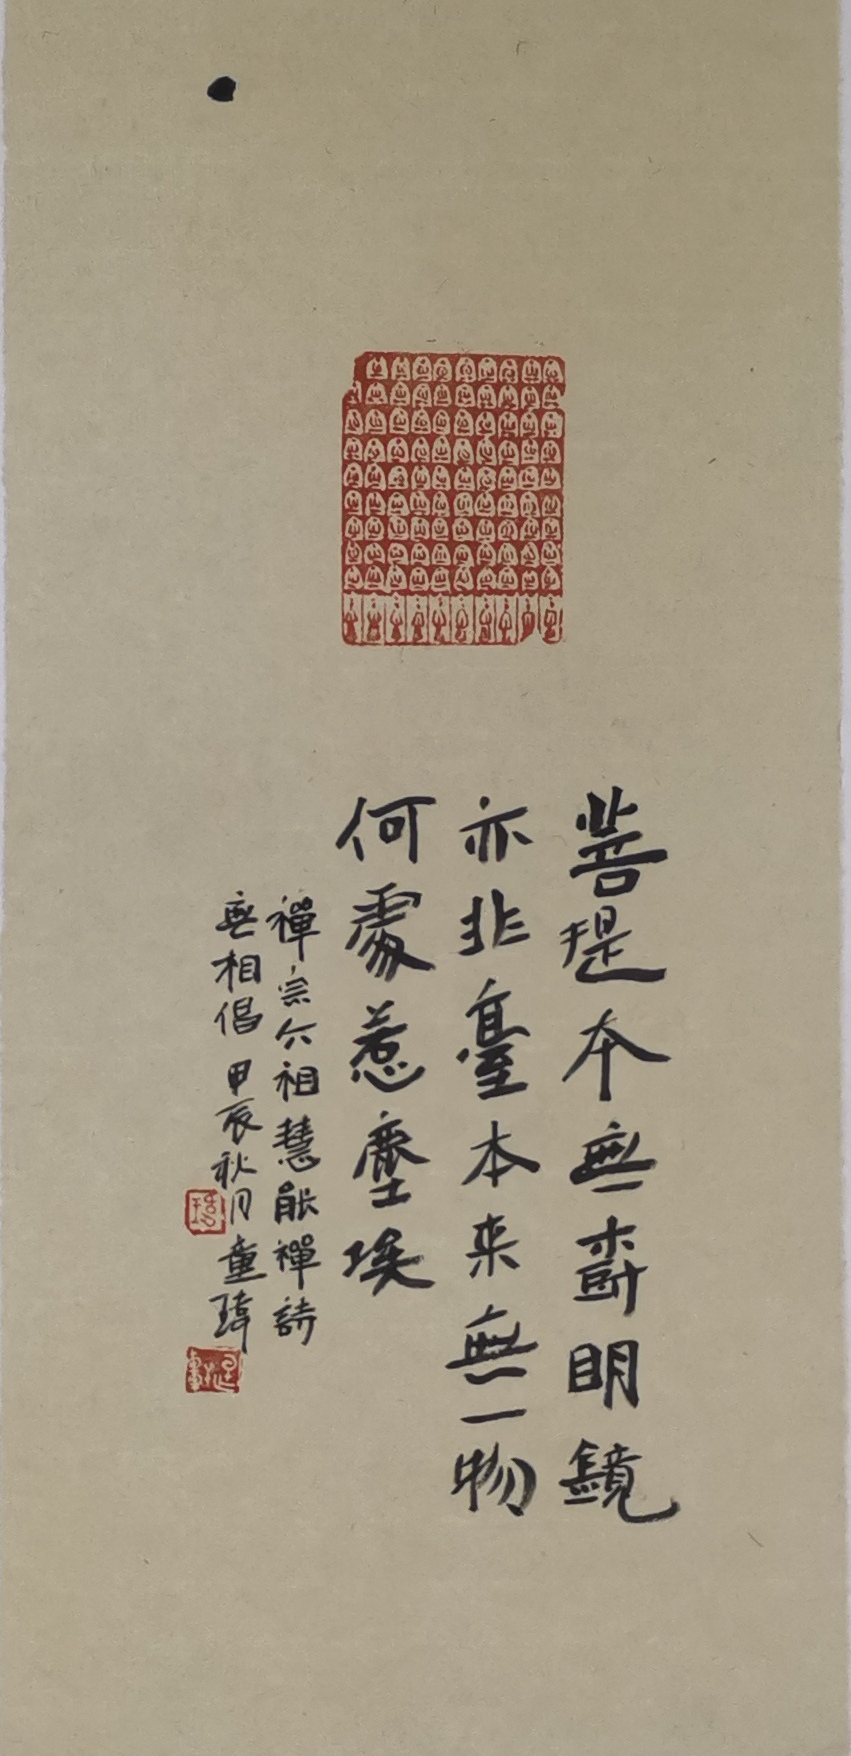 菩提本無樹明鏡
亦非臺本来無一物
何處惹塵埃
禪宗六祖慧能禪詩
無相偈甲辰秋月童瑋